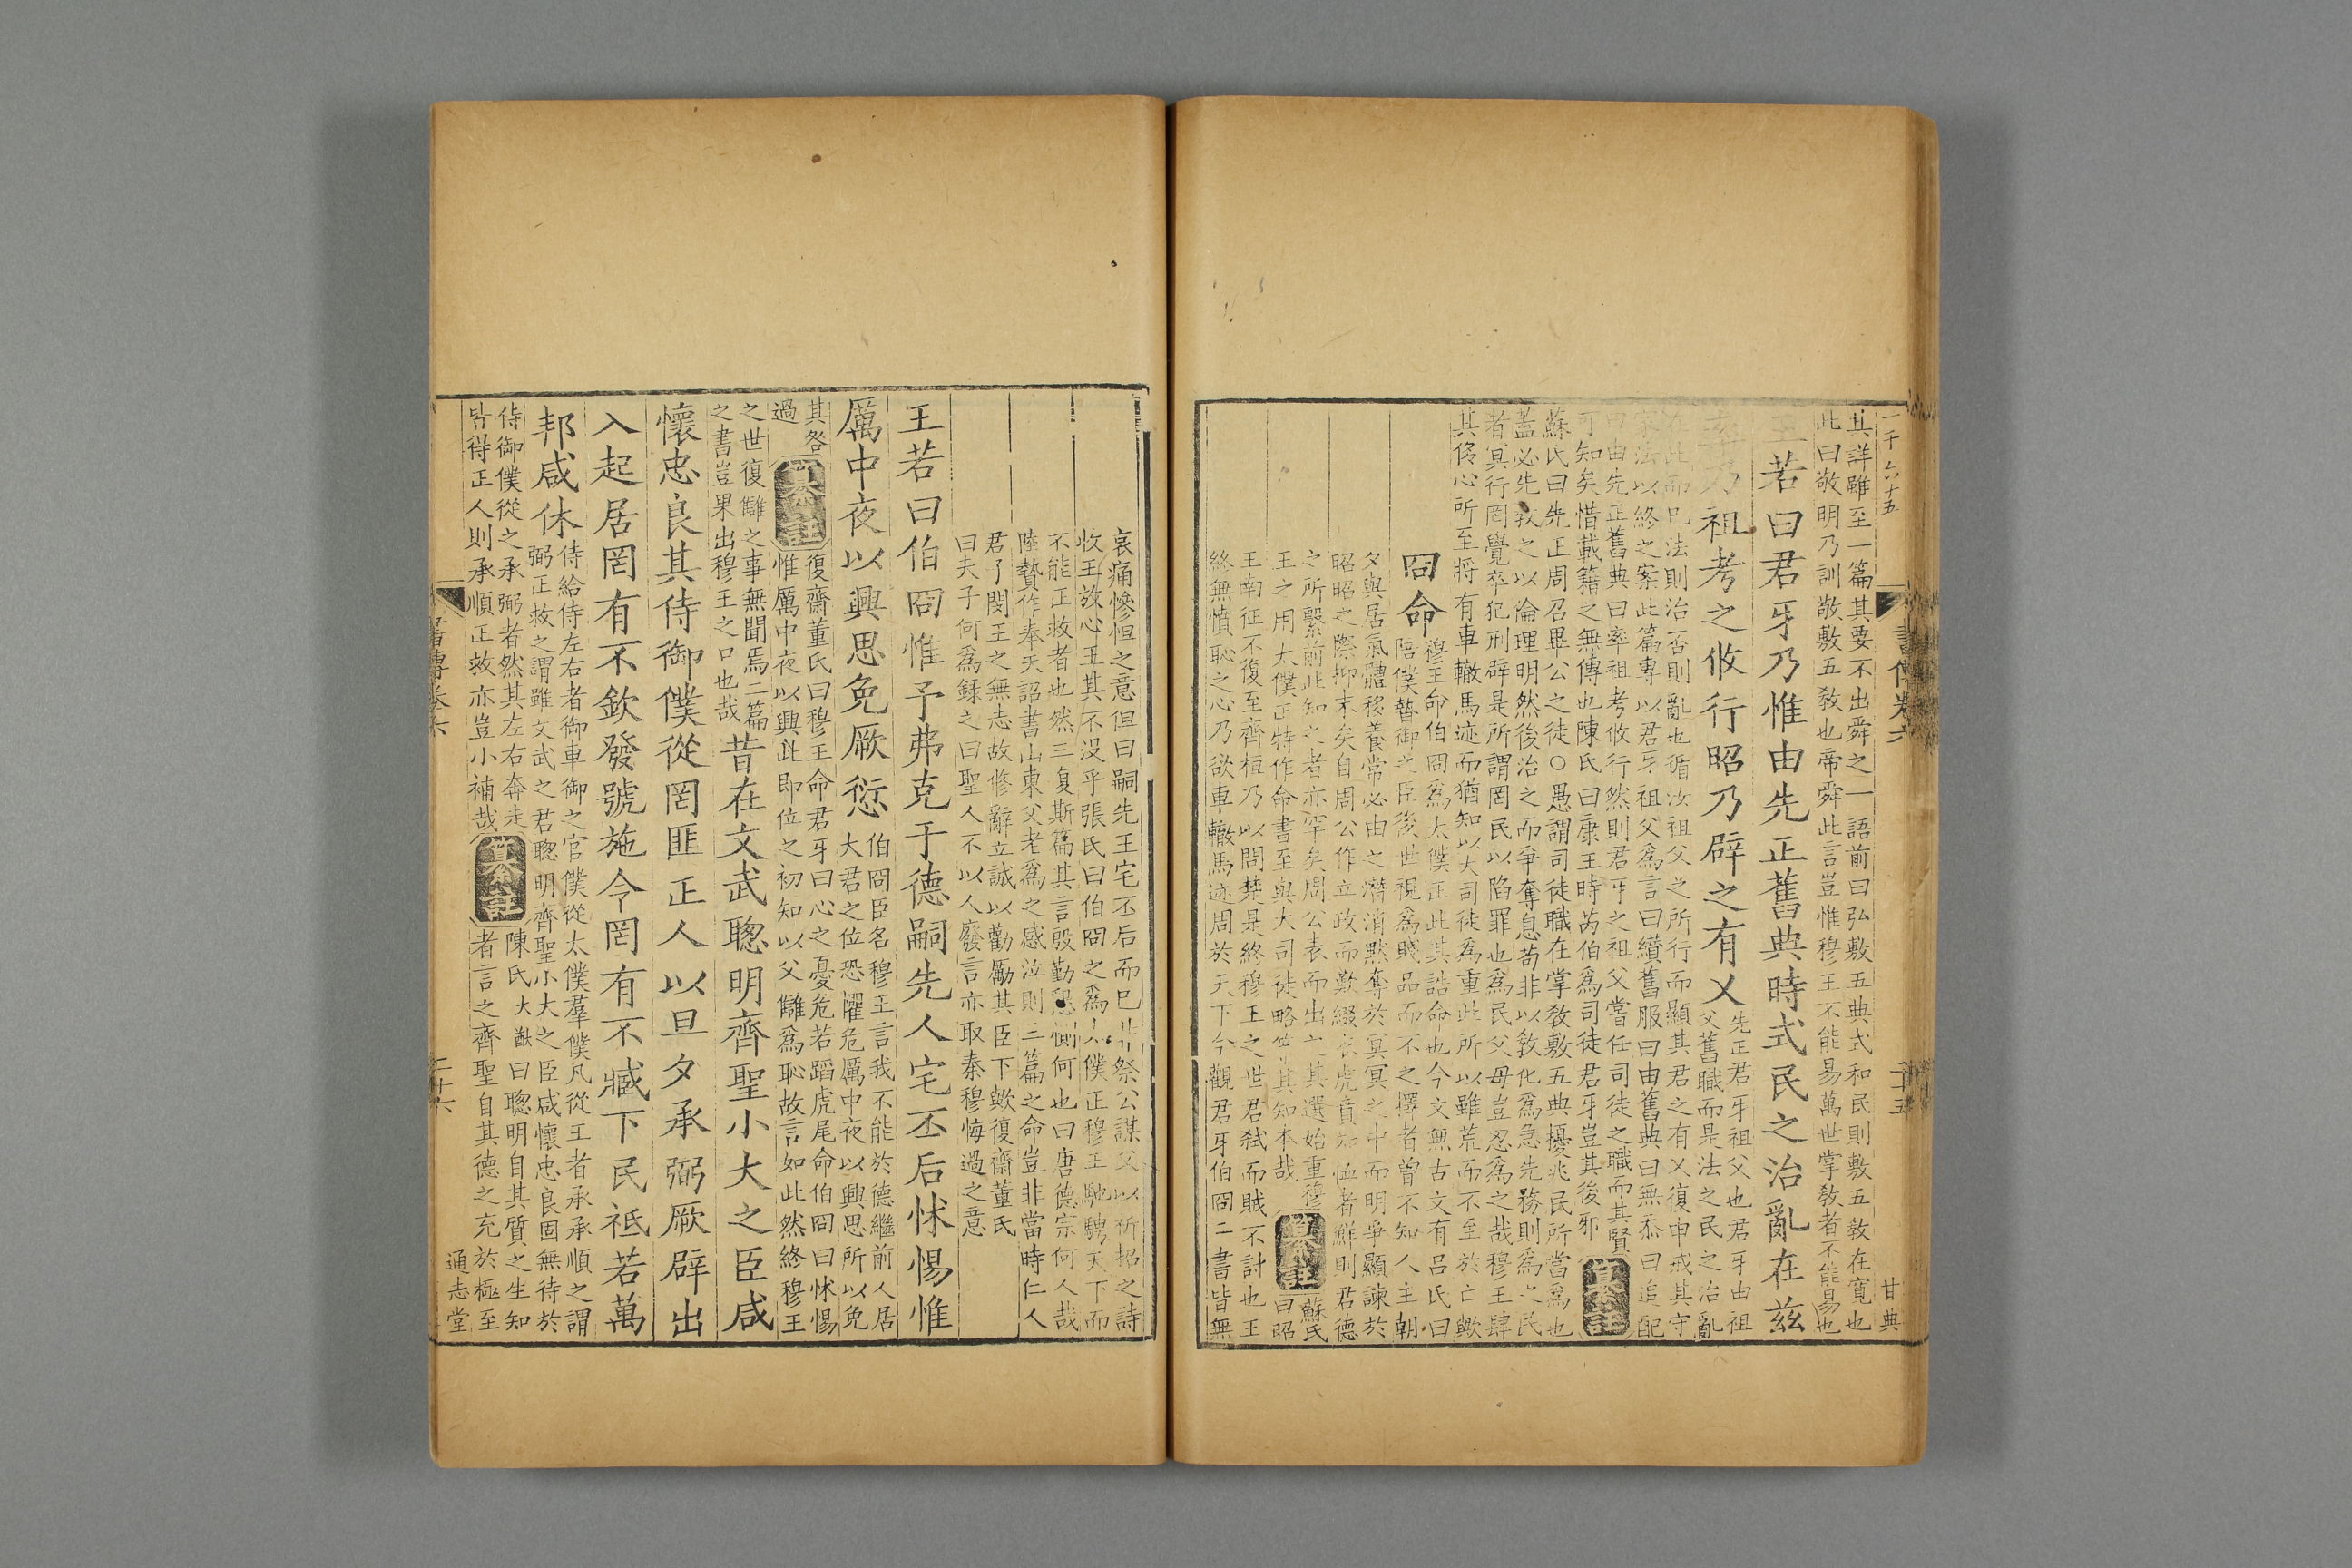 一千六十五
書傳卷六
二十五
甘典
其詳雖至一篇其要不出舜之一語前曰弘敷五典式和民則敷五敎在寛也
此曰敬明乃訓敬敷五敎也帝舜此言豈惟穆王不能易萬世掌敎者不能易也
王若曰君牙乃惟由先正舊典時式民之治亂在茲
乃祖考之攸行昭乃辟之有乂
先正君牙祖父也君牙由祖
父舊職而是法之民之治亂
在此而已法則治否則亂也循汝祖父之所行而顯其君之有乂復申戒其守
家法以終之案此篇專以君牙祖父爲言曰纘舊服曰由舊典曰無忝曰追配
曰由先正舊典曰率祖考攸行然則君牙之祖父嘗任司徒之職而其賢
可知矣惜載籍之無傳也陳氏曰康王時芮伯爲司徒君牙豈其後邪
纂註
蘇氏曰先正周召畢公之徒○愚謂司徒職在掌敎敷五典擾兆民所當爲也
蓋必先敎之以倫理明然後治之而爭奪息苟非以敎化爲急先務則爲之民
者冥行罔覺卒犯刑辟是所謂罔民以陷罪也爲民父母豈忍爲之哉穆王肆
其侈心所至將有車轍馬迹而猶知以大司徒爲重此所以雖荒而不至於亡歟
冏命
穆王命伯冏爲太僕正此其誥命也今文無古文有呂氏曰
陪僕暬御之臣後世視爲賤品而不之擇者曾不知人主朝
夕與居氣體移養常必由之潛消默奪於冥冥之中而明爭顯諫於
昭昭之際抑末矣自周公作立政而歎綴衣虎賁知恤者鮮則君德
之所繫前此知之者亦罕矣周公表而出之其選始重穆
王之用太僕正特作命書至與大司徒略等其知本哉
纂註
蘇氏
曰昭
王南征不復至齊桓乃以問楚是終穆王之世君弒而賊不討也王
終無憤恥之心乃欲車轍馬迹周於天下今觀君牙伯冏二書皆無
哀痛慘怛之意但曰嗣先王宅丕后而已非祭公謀父以祈招之詩
收王放心王其不沒乎張氏曰伯冏之爲太僕正穆王馳騁天下而
不能正救者也然三复斯篇其言殷勤懇惻何也曰唐德宗何人哉
陸贄作奉天詔書山東父老爲之感泣則二篇之命豈非當時仁人
君子閔王之無志故修辭立誠以勸勵其臣下歟復齋董氏
曰夫子何爲錄之曰聖人不以人廢言亦取秦穆悔過之意
王若曰伯冏惟予弗克于德嗣先人宅丕后怵惕惟
厲中夜以興思免厥愆
伯冏臣名穆王言我不能於德繼前人居
大君之位恐懼危厲中夜以興思所以免
其咎
過
纂註
復齋董氏曰穆王命君牙曰心之憂危若蹈虎尾命伯冏曰怵惕
惟厲中夜以興此即位之初知以父讎爲恥故言如此然終穆王
之世復讎之事無聞焉二篇
之書豈果出穆王之口也哉
昔在文武聰明齊聖小大之臣咸
懷忠良其侍御僕從罔匪正人以旦夕承弼厥辟出
入起居罔有不欽發號施令罔有不臧下民祗若萬
邦咸休
侍給侍左右者御車御之官僕從太僕羣僕凡從王者承承順之謂
弼正救之謂雖文武之君聰明齊聖小大之臣咸懷忠良固無待於
侍御僕從之承弼者然其左右奔走
皆得正人則承順正救亦豈小補哉
纂註
陳氏大猷曰聰明自其質之生知
者言之齊聖自其德之充於極至
書傳卷六
二十六
通志堂